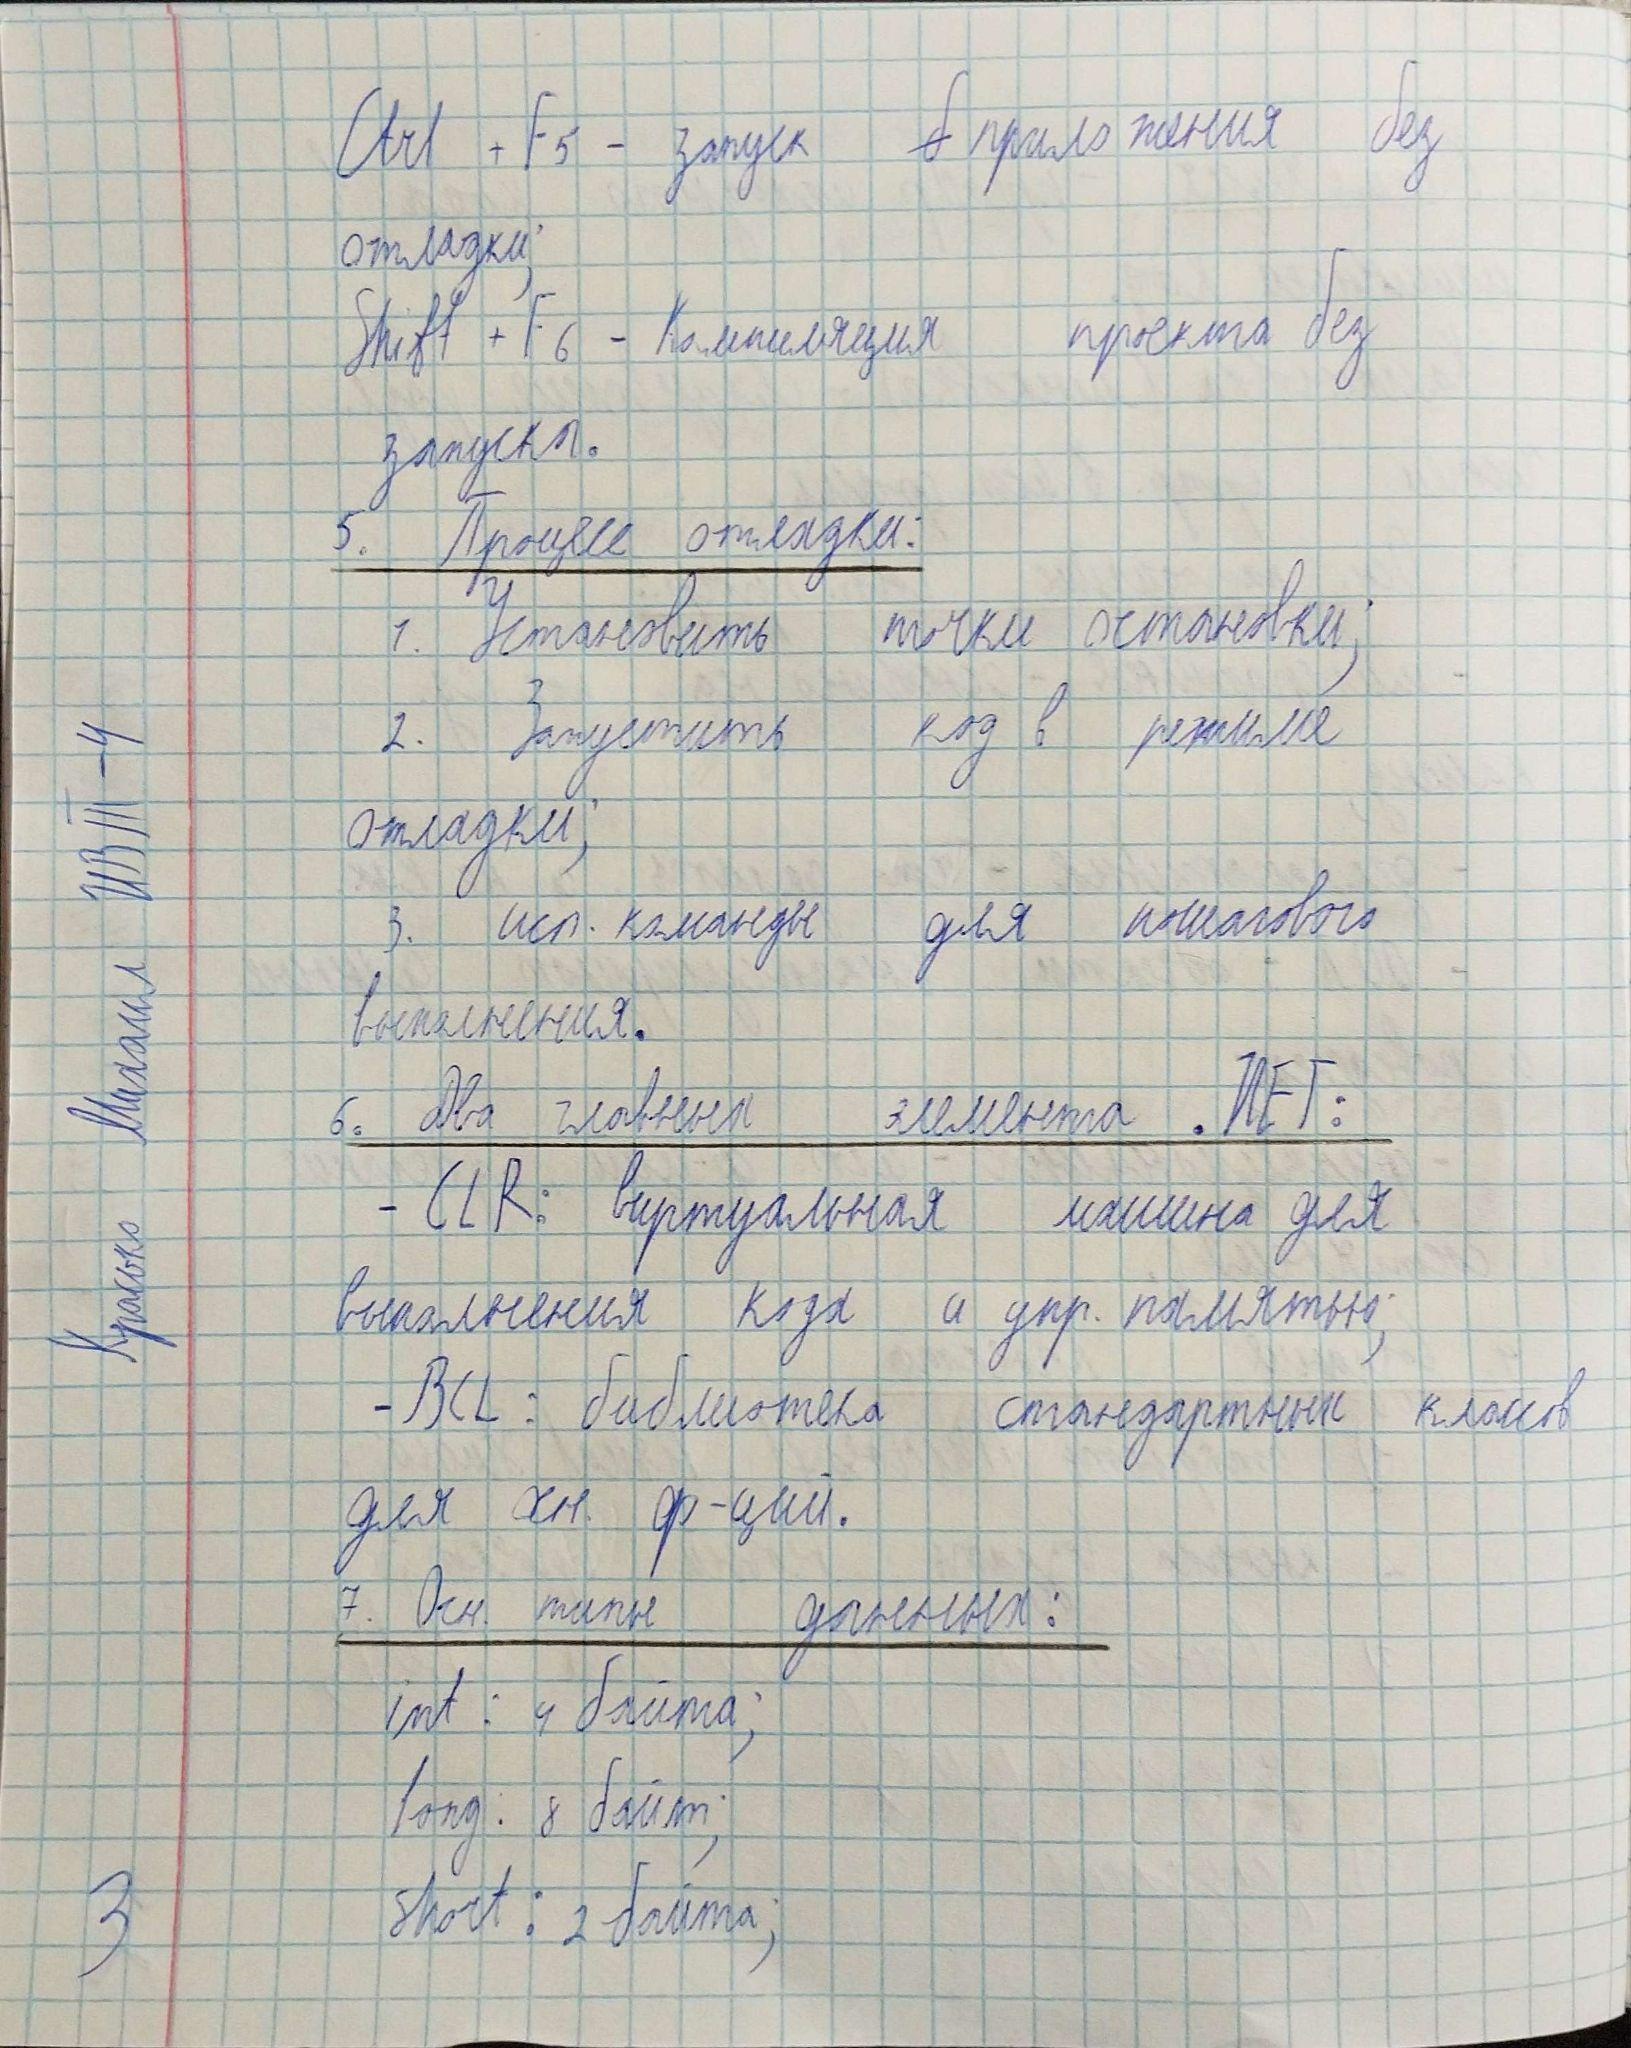 Ctrl + F5 - запуск приложения без
отладки;
Shift + F6 - Компиляция проекта без
запуска.
5. Процесс отладки:
1. Установить точки остановки;
2. Запустить код в режиме
отладки;
3. исп. команды для пошагового
выполнения.
6. Два главных элемента .NET:
- CLR: виртуальная машина для
выполнения кода и упр. памятью;
- BCL: библиотека стандартных классов
для ф-ций.
7. Осн. типы данных:
int: 4 байта;
long: 8 байт;
short: 2 байта;
Красько Михаил ИВТ-4
3